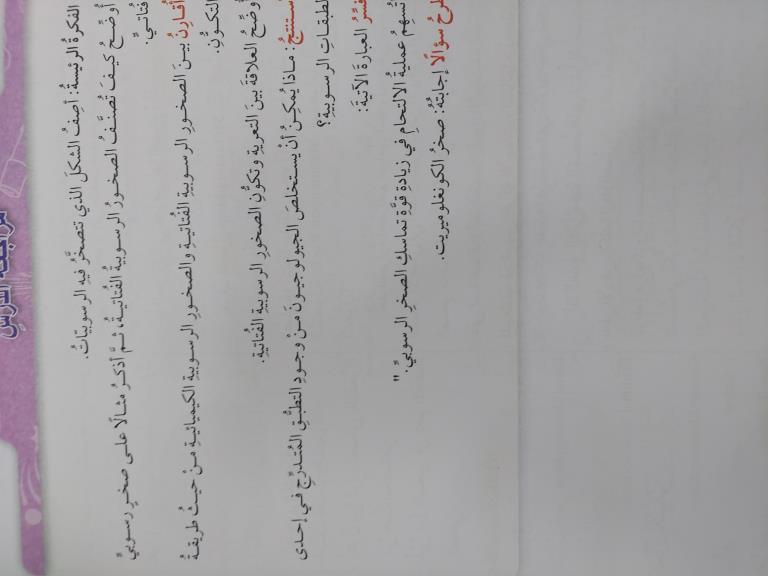 مراجعة الدرس
الفكرةُ الرئيسةُ: أصِفُ الشكلَ الذي تتصخَّرُ فيهِ الرسوبيّاتُ.
أُوضِّحُ كيفَ تُصنَّفُ الصخورُ الرسوبيةُ الفُتاتيةُ، ثمَّ أذكرُ مثالًا على صخرٍ رسوبيٍّ
فُتاتيٍّ.
أُقارِنُ بينَ الصخورِ الرسوبيةِ الفُتاتيةِ والصخورِ الرسوبيةِ الكيميائيةِ منْ حيثُ طريقةُ
التكوُّنِ.
أُوضِّحُ العلاقةَ بينَ التعريةِ وتكوُّنِ الصخورِ الرسوبيةِ الفُتاتيةِ.
أستنتجُ: ماذا يُمكِنُ أنْ يستخلصَ الجيولوجيونَ منْ وجودِ التطبُّقِ المُتدرِّجِ في إحدى
الطبقاتِ الرسوبيةِ؟
أُفسِّرُ العبارةَ الآتيةَ:
تُسهِمُ عمليةُ الالتحامِ في زيادةِ قوَّةِ تماسكِ الصخرِ الرسوبيِّ."
أطرحُ سؤالًا إجابتُهُ: صخرُ الكونغلوميريت.